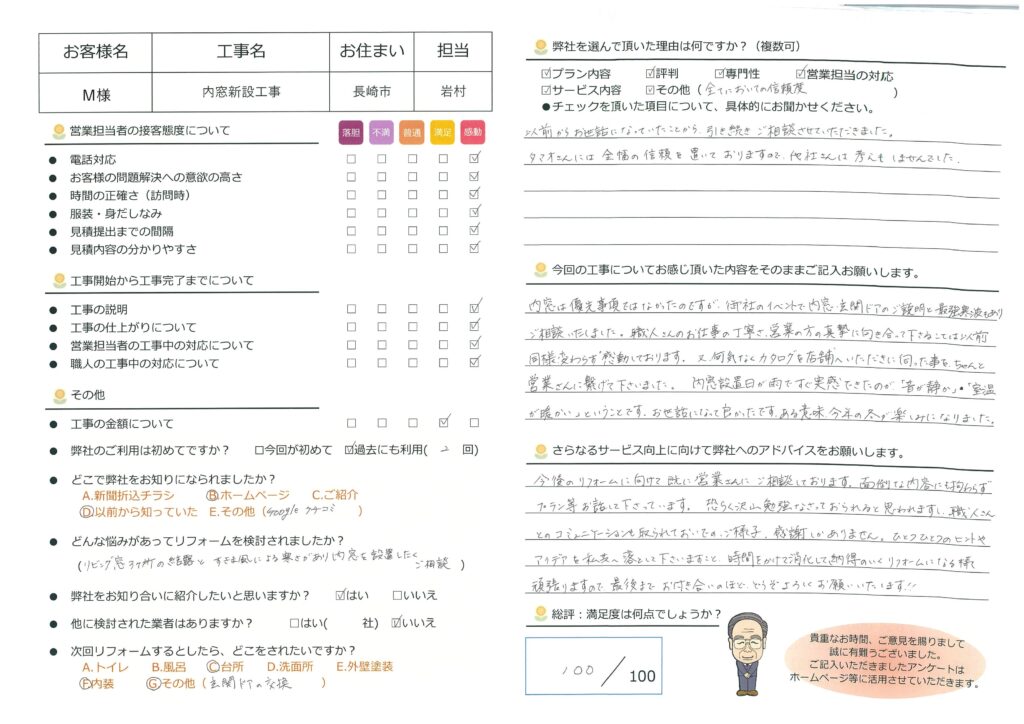 お客様名 工事名 お住まい 担当
M様 内窓新設工事 長崎市 岩村
営業担当者の接客態度について 落胆 不満 普通 満足 感動
● 電話対応 □ □ □ □ ☑
● お客様の問題解決への意欲の高さ □ □ □ □ ☑
● 時間の正確さ（訪問時） □ □ □ □ ☑
● 服装・身だしなみ □ □ □ □ ☑
● 見積提出までの間隔 □ □ □ □ ☑
● 見積内容の分かりやすさ □ □ □ □ ☑
工事開始から工事完了までについて
● 工事の説明 □ □ □ □ ☑
● 工事の仕上がりについて □ □ □ □ ☑
● 営業担当者の工事中の対応について □ □ □ □ ☑
● 職人の工事中の対応について □ □ □ □ ☑
その他
● 工事の金額について □ □ □ ☑ □
● 弊社のご利用は初めてですか？ □今回が初めて ☑過去にも利用( 2 回)
● どこで弊社をお知りになられましたか？
A.新聞折込チラシ B.ホームページ C.ご紹介
D.以前から知っていた E.その他（Google クチコミ ）
● どんな悩みがあってリフォームを検討されましたか？
(リビング窓3ヶ所の結露と すきま風による寒さがあり内窓を設置したく
ご相談 )
● 弊社をお知り合いに紹介したいと思いますか？ ☑はい □いいえ
● 他に検討された業者はありますか？ □はい( 社) ☑いいえ
● 次回リフォームするとしたら、どこをされたいですか？
A.トイレ B.風呂 C.台所 D.洗面所 E.外壁塗装
F.内装 G.その他（玄関ドアの交換 ）
弊社を選んで頂いた理由は何ですか？（複数可）
☑プラン内容 ☑評判 ☑専門性 ☑営業担当の対応
☑サービス内容 ☑その他（全てにおいての信頼度 ）
●チェックを頂いた項目について、具体的にお聞かせください。
以前からお世話になっていたことから、引き続きご相談させていただきました。
タマオさんには全幅の信頼を置いておりますので、他社さんは考えもしませんでした。
今回の工事についてお感じ頂いた内容をそのままご記入お願いします。
内窓は優先事項ではなかったのですが、御社のイベントで内窓・玄関ドアのご説明と最強寒波もあり
ご相談いたしました。職人さんのお仕事の丁寧さ、営業の方の真摯に向き合って下さることは以前
同様変わらず感動しております。又何気なくカタログを店舗へいただきに伺った事を、ちゃんと
営業さんに繋げて下さいました。 内窓設置日が雨ですぐ実感できたのが「音が静か」・「室温
が暖かい」ということです。お世話になって良かったです。ある意味今年の冬が楽しみになりました。
さらなるサービス向上に向けて弊社へのアドバイスをお願いします。
今後のリフォームに向けて既に営業さんにご相談しております。面倒な内容にも拘わらず
プラン等お話して下さっています。 恐らく沢山勉強なさっておられると思われますし、職人さん
とのコミュニケーションも取られておいでのご様子、感謝しかありません。ひとつひとつのヒントや
アイデアを私共へ落として下さいますこと、時間をかけて消化して納得のいくリフォームになる様
頑張りますので、最後までお付き合いのほど、どうぞよろしくお願いいたします!!
総評：満足度は何点でしょうか？
100 / 100
貴重なお時間、ご意見を賜りまして
誠に有難うございました。
ご記入いただきましたアンケートは
ホームページ等に活用させていただきます。